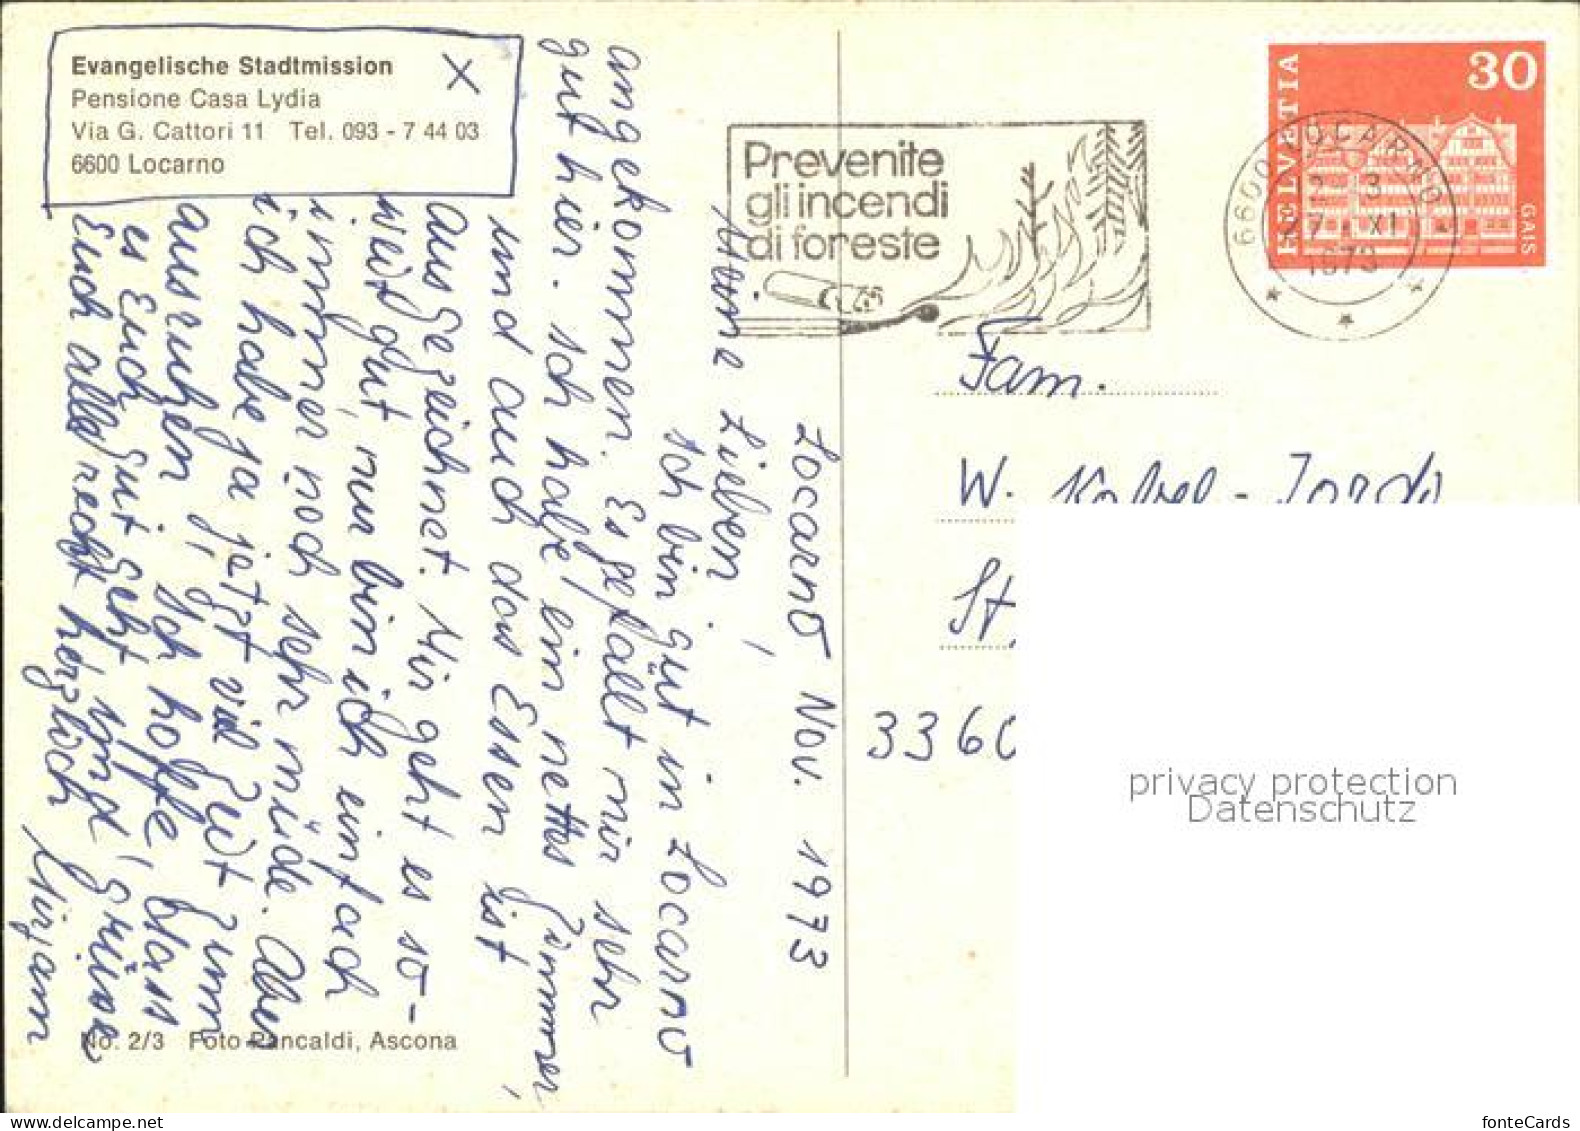 Evangelische Stadtmission
X
Pensione Casa Lydia
Via G. Cattori 11 Tel. 093 - 7 44 03
6600 Locarno
Locarno Nov. 1973
Meine Lieben,
Ich bin gut in Locarno
angekommen. Es gefällt mir sehr
gut hier. Ich habe ein nettes Zimmer,
und auch das Essen ist
ausgezeichnet. Mir geht es so-
weit gut, nur bin ich einfach
immer noch sehr müde. Aber
ich habe ja jetzt viel Zeit zum
ausruhen. Ich hoffe, dass
es Euch gut geht, und grüsse
Euch alle recht herzlich
Mirjam
No. 2/3 Foto Pancaldi, Ascona
Prevenite
gli incendi
di foreste
6600 LOCARNO
1973
HELVETIA
30
GAIS
Fam.
W.
St.
3360
privacy protection
Datenschutz
fonteCards